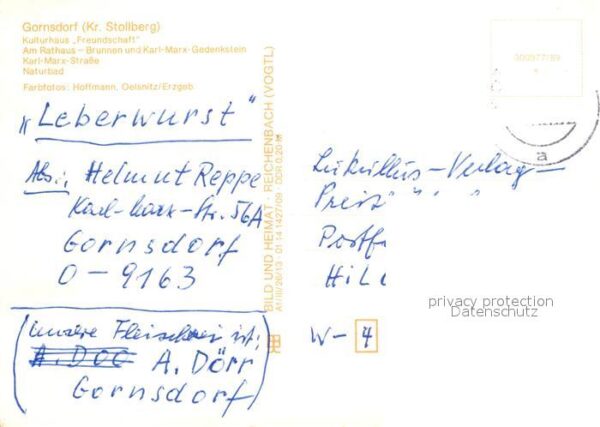 Gornsdorf (Kr. Stollberg)
Kulturhaus „Freundschaft"
Am Rathaus – Brunnen und Karl-Marx-Gedenkstein
Karl-Marx-Straße
Naturbad
Farbfotos: Hoffmann, Oelsnitz/Erzgeb.
„Leberwurst"
Abs.: Helmut Reppe
Karl-Marx-Str. 56A
Gornsdorf
O-9163
(unsere Fleischerei ist:
A. Dörr
Gornsdorf)
BILD UND HEIMAT · REICHENBACH (VOGTL)
A1/III/26/13 01 14 1427/09 DDR 0,20 M
000977/89
a
Lukullus-Verlag-
Preis
Postf
Hil
W- 4
privacy protection
Datenschutz